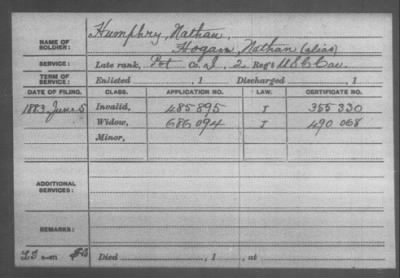 NAME OF SOLDIER: Humphry, Nathan,
Hogan, Nathan (alias)
SERVICE: Late rank, Pvt Co. I, 2 Reg't U.S.C. Cav.
TERM OF SERVICE: Enlisted , 1 Discharged , 1
DATE OF FILING. CLASS. APPLICATION NO. LAW. CERTIFICATE NO.
1883 June 5 Invalid, 485 895 J 355 330
Widow, 686 094 J 490 068
Minor,
ADDITIONAL SERVICES:
REMARKS:
Died , 1 , at